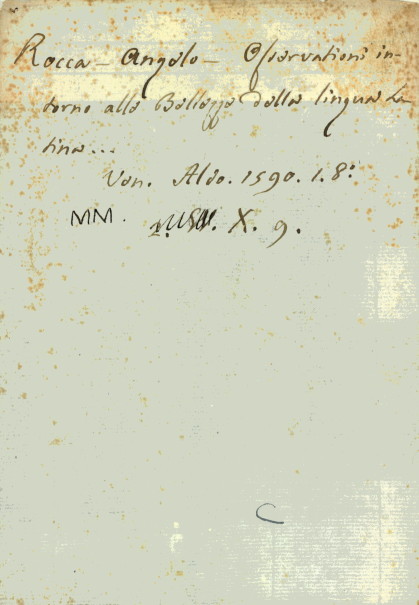 Rocca - Angelo - Osservationi in-
torno alle Bellezze della lingua La
tina...
Ven. Aldo. 1590. 1. 8º
MM. X. 9.
C